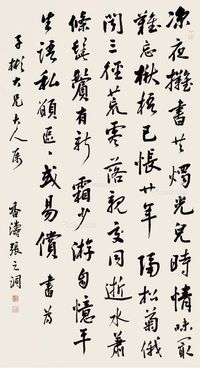 涼夜擁書共燭光兒時情味最
難忘楸梧已悵廿年隔松菊俄
聞三徑荒零落親交同逝水蕭
條鬢有新霜少游自憶平
生語私願區〻或易償書為
子彬大兄大人屬
香濤張之洞